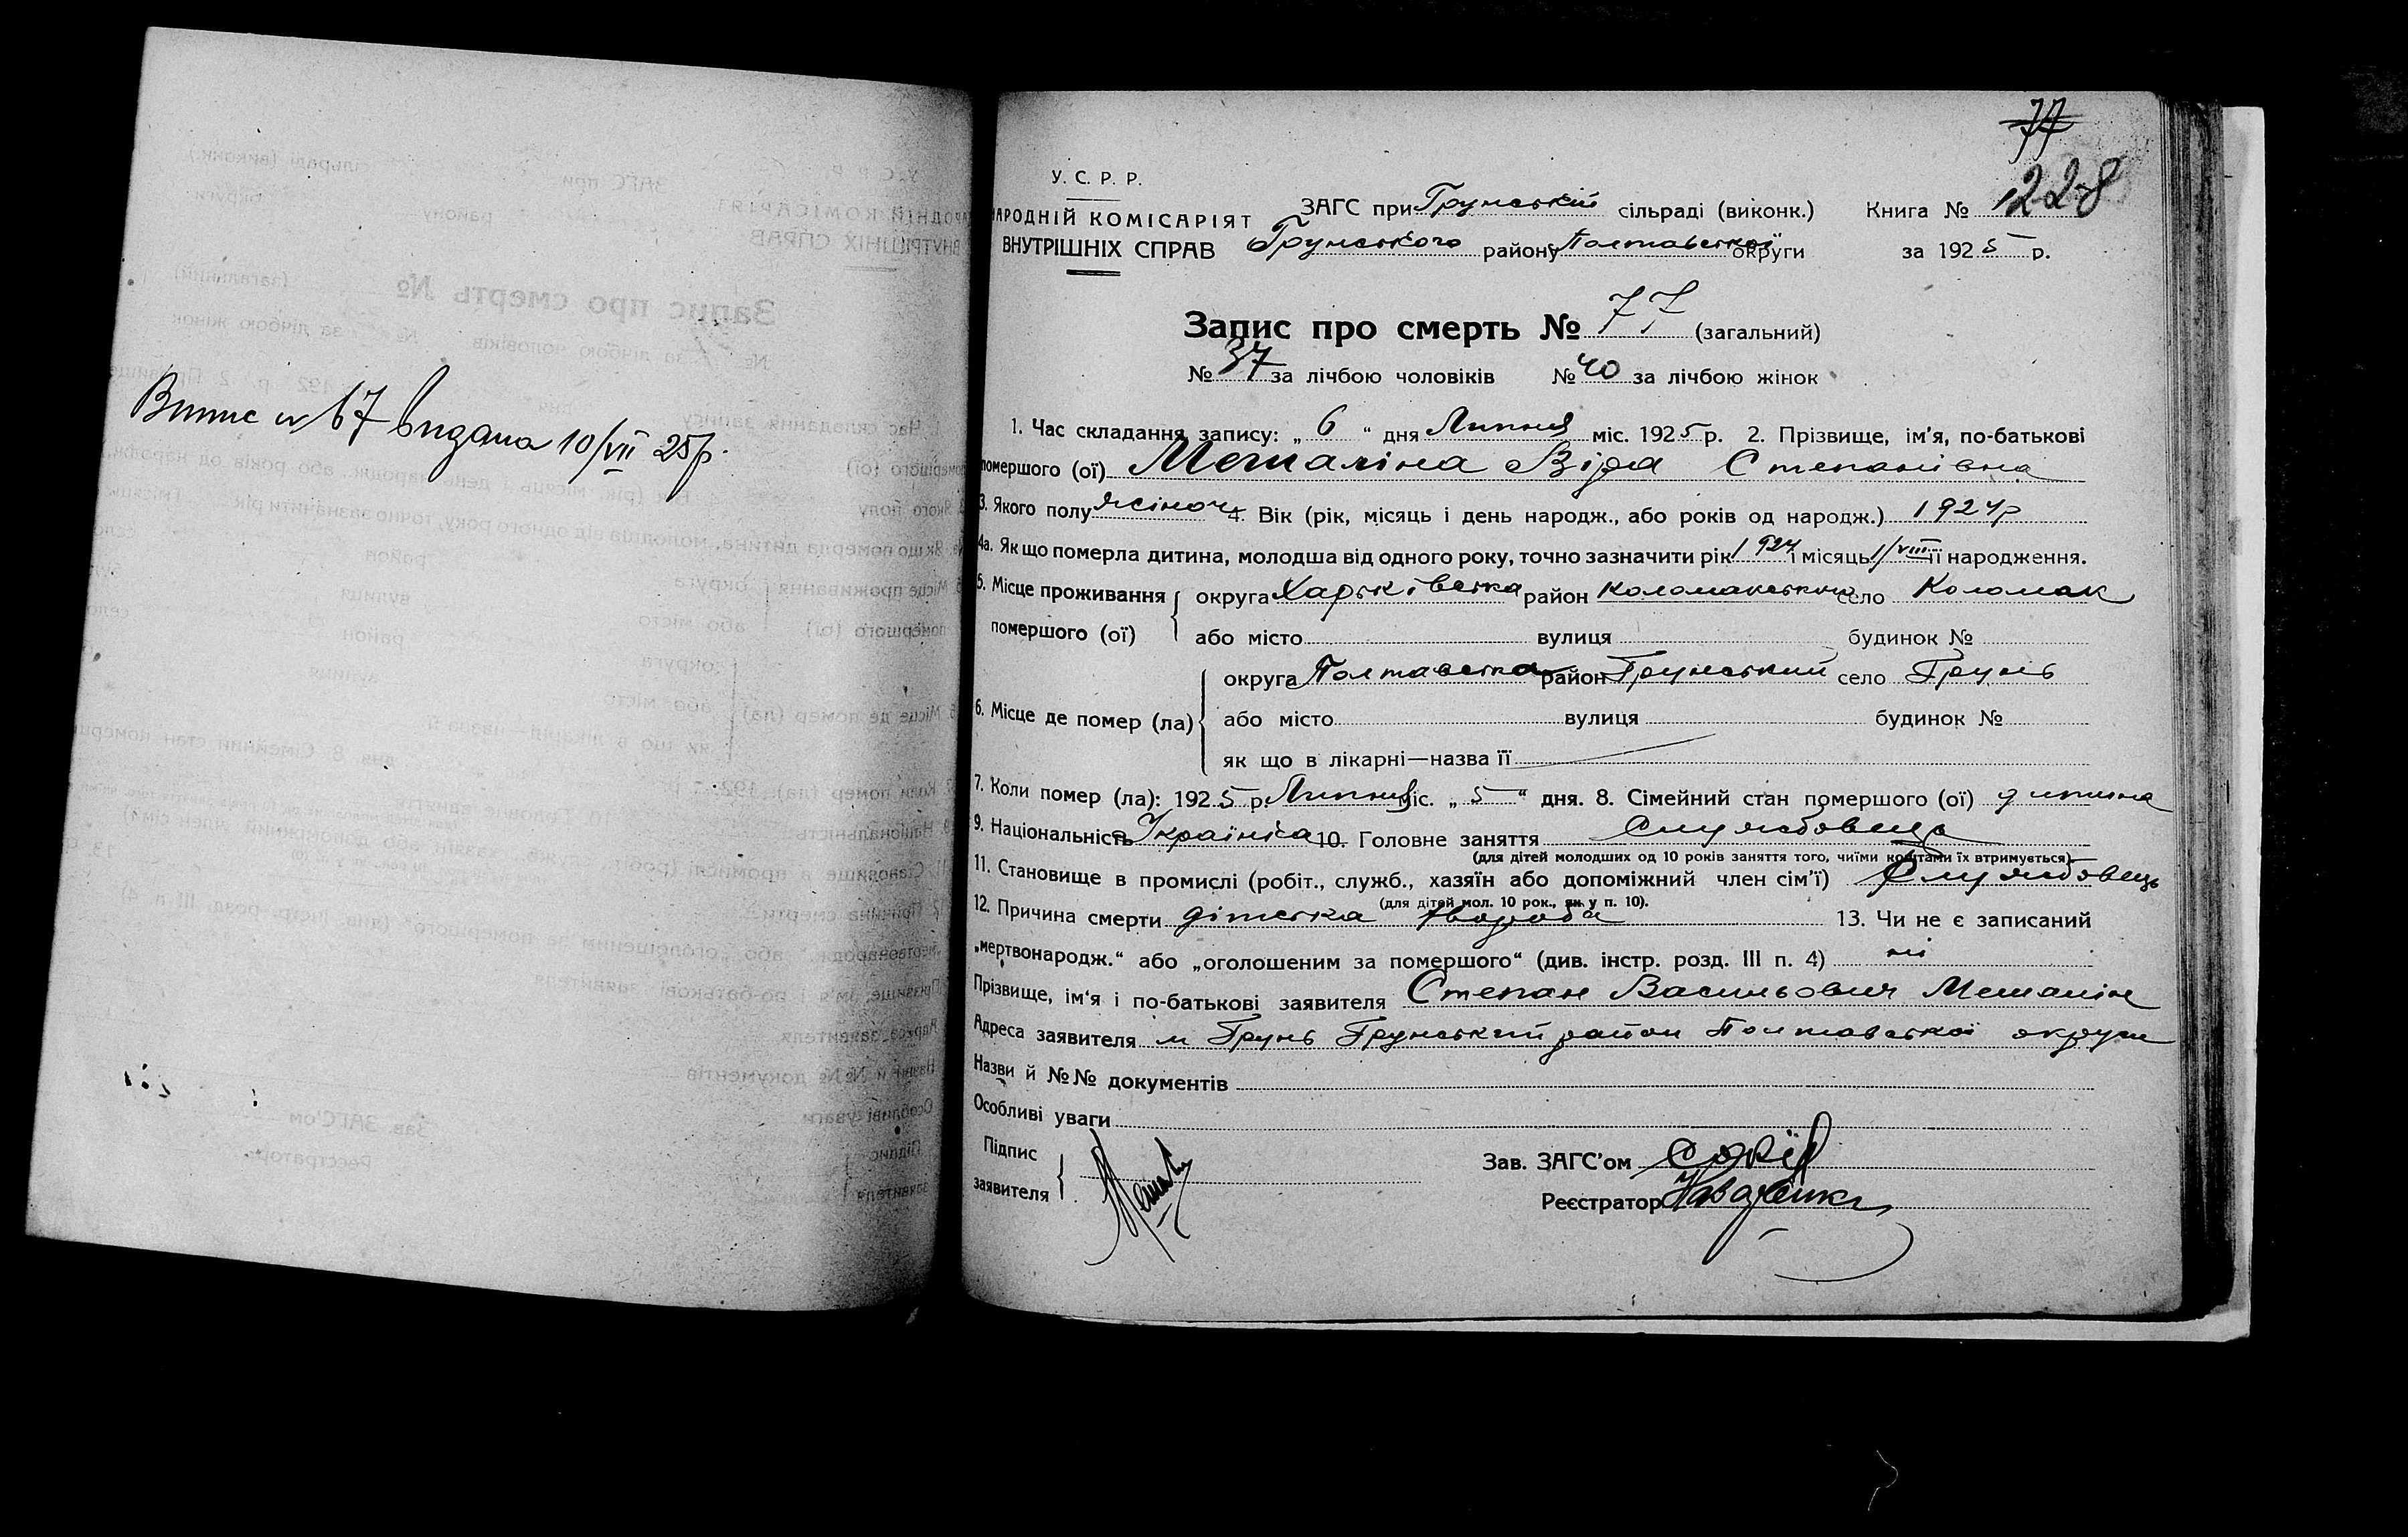 Випис № 67 видана 10/VII 25р.
77
У. С. Р. Р.
НАРОДНІЙ КОМІСАРІЯТ
ВНУТРІШНІХ СПРАВ
ЗАГС при Грунській сільраді (виконк.) Книга № 228
Грунського району Полтавської округи за 1925 р.
Запис про смерть № 77 (загальний)
№ 37 за лічбою чоловіків № 40 за лічбою жінок
1. Час складання запису: „ 6 “ дня Липня міс. 1925 р. 2. Прізвище, ім’я, по-батькові
помершого (ої) Мешаліна Віра Степанівна
3. Якого полу жіноч 4. Вік (рік, місяць і день народж., або років од народж.) 1924р
4а. Як що померла дитина, молодша від одного року, точно зазначити рік 1924 і місяць 1/VIII її народження.
5. Місце проживання помершого (ої) { округа Харьківська район Коломакського село Коломак
або місто вулиця будинок №
6. Місце де помер (ла) { округа Полтавська район Грунський село Грунь
або місто вулиця будинок №
як що в лікарні—назва її
7. Коли помер (ла): 1925 р. Липня міс. „ 5 “ дня. 8. Сімейний стан помершого (ої) дитина
9. Національність Україніка 10. Головне заняття Службовець
(для дітей молодших од 10 років заняття того, чиїми коштами їх втримується).
11. Становище в промислі (робіт., служб., хазяїн або допоміжний член сім’ї) Службовець
(для дітей мол. 10 рок., як у п. 10).
12. Причина смерти дітська хвороба 13. Чи не є записаний
„мертвонародж.“ або „оголошеним за помершого“ (див. інстр. розд. III п. 4) ні
Прізвище, ім’я і по-батькові заявителя Степан Васильович Мешалін
Адреса заявителя м Грунь Грунський район Полтавської округи
Назви й №№ документів
Особливі уваги
Підпис
заявителя
Зав. ЗАГС’ом
Реєстратор